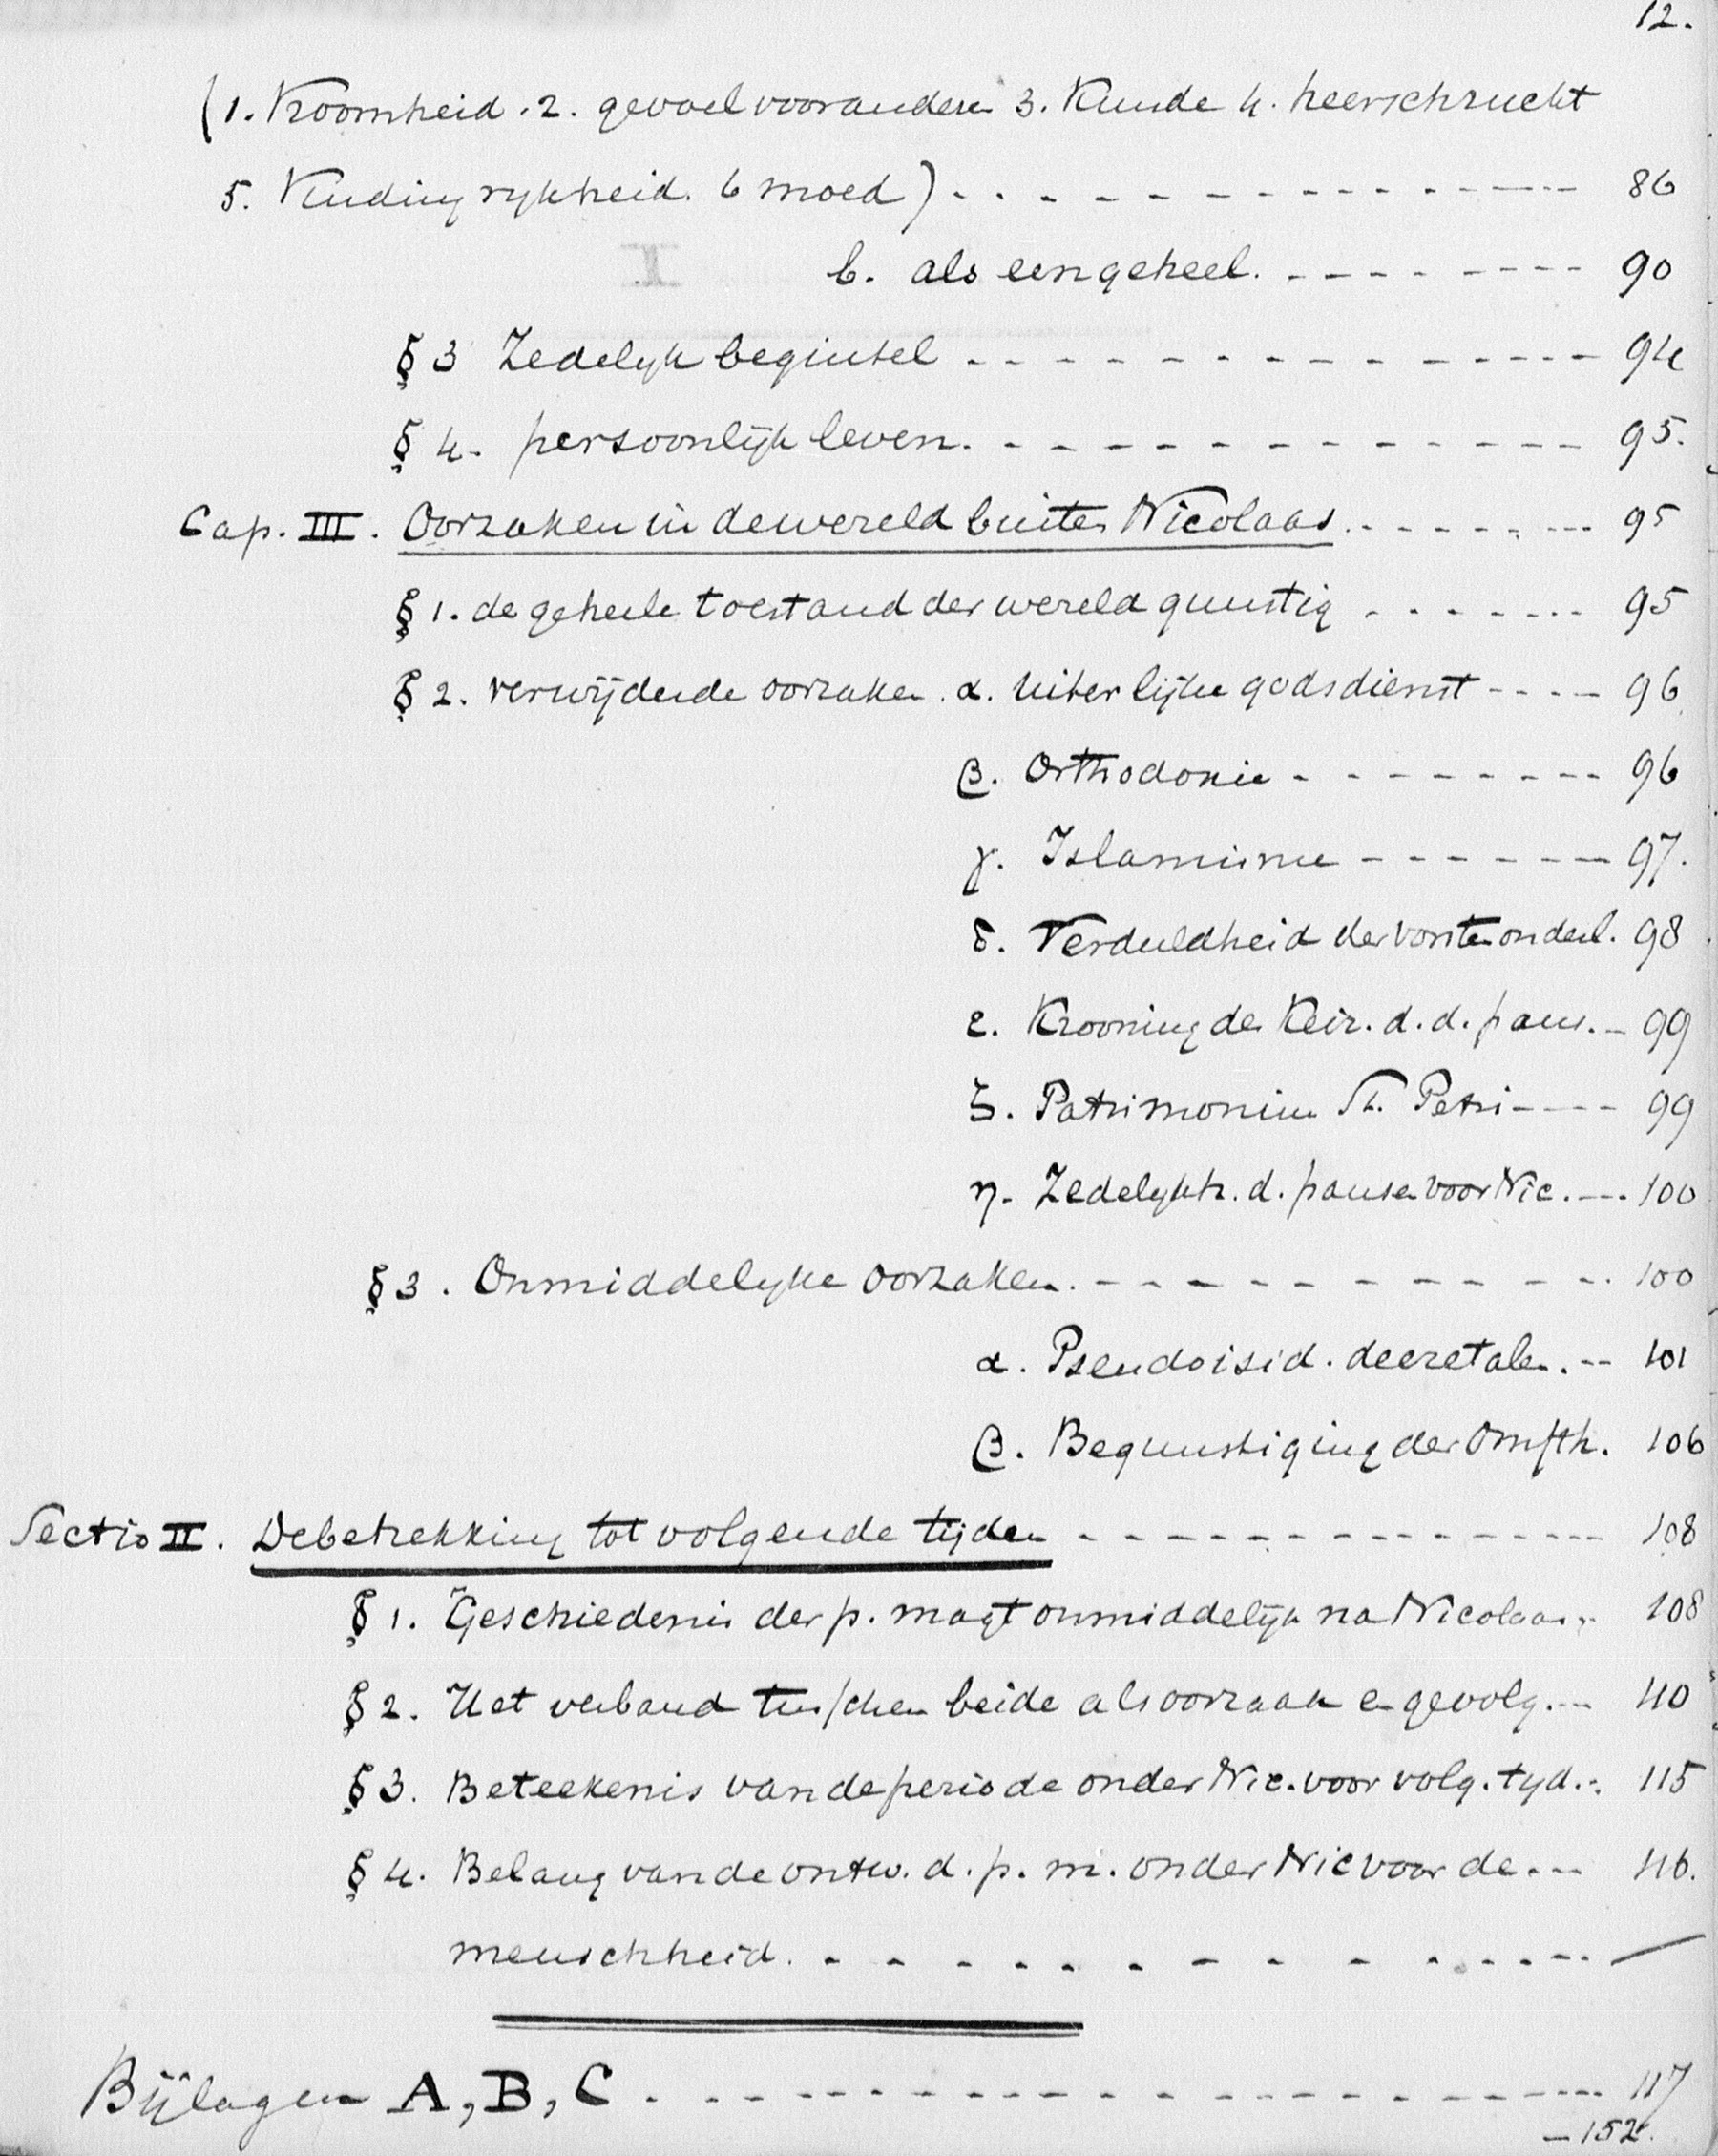 12.
(1. Vroomheid. 2. gevoel voor anderen 3. Kunde 4. heerschzucht
5. Vindingrykheid. 6 moed) - - - 86
b. als een geheel. - - - 90
§ 3 Zedelyk beginsel - - - 94
§ 4. persoonlijk leven. - - - 95.
Cap. III. Oorzaken in de wereld buiten Nicolaas. - - - 95
§ 1. de geheele toestand der wereld gunstig - - - 95
§ 2. verwijderde oorzaken. α. Uiterlijke godsdienst - - - 96
β. Orthodoxie - - - 96
γ. Islamisme - - - 97.
δ. Verduldheid der vorsten onderl. 98
ε. Krooning der Keiz. d. d. paus. - 99
ζ. Patrimonium St. Petri - - - 99
η. Zedelykh. d. pausen voor Nic. - - - 100
§ 3. Onmiddelyke oorzaken. - - - 100
α. Pseudoisid. decretalen. - - 101
β. Begunstiging der 106
Sectio II. De betrekking tot volgende tijden - - - 108
§ 1. Geschiedenis der p. magt onmiddelijk na Nicolaas. - 108
§ 2. Het verband tusschen beide als oorzaak en gevolg. - - 110
§ 3. Beteekenis van de periode onder Nic. voor volg. tyd. - 115
§ 4. Belang van de ontw. d. p. m. onder Nic voor de - - - 116.
menschheid. - - - —
Bijlagen A, B, C - - - 117
— 152.